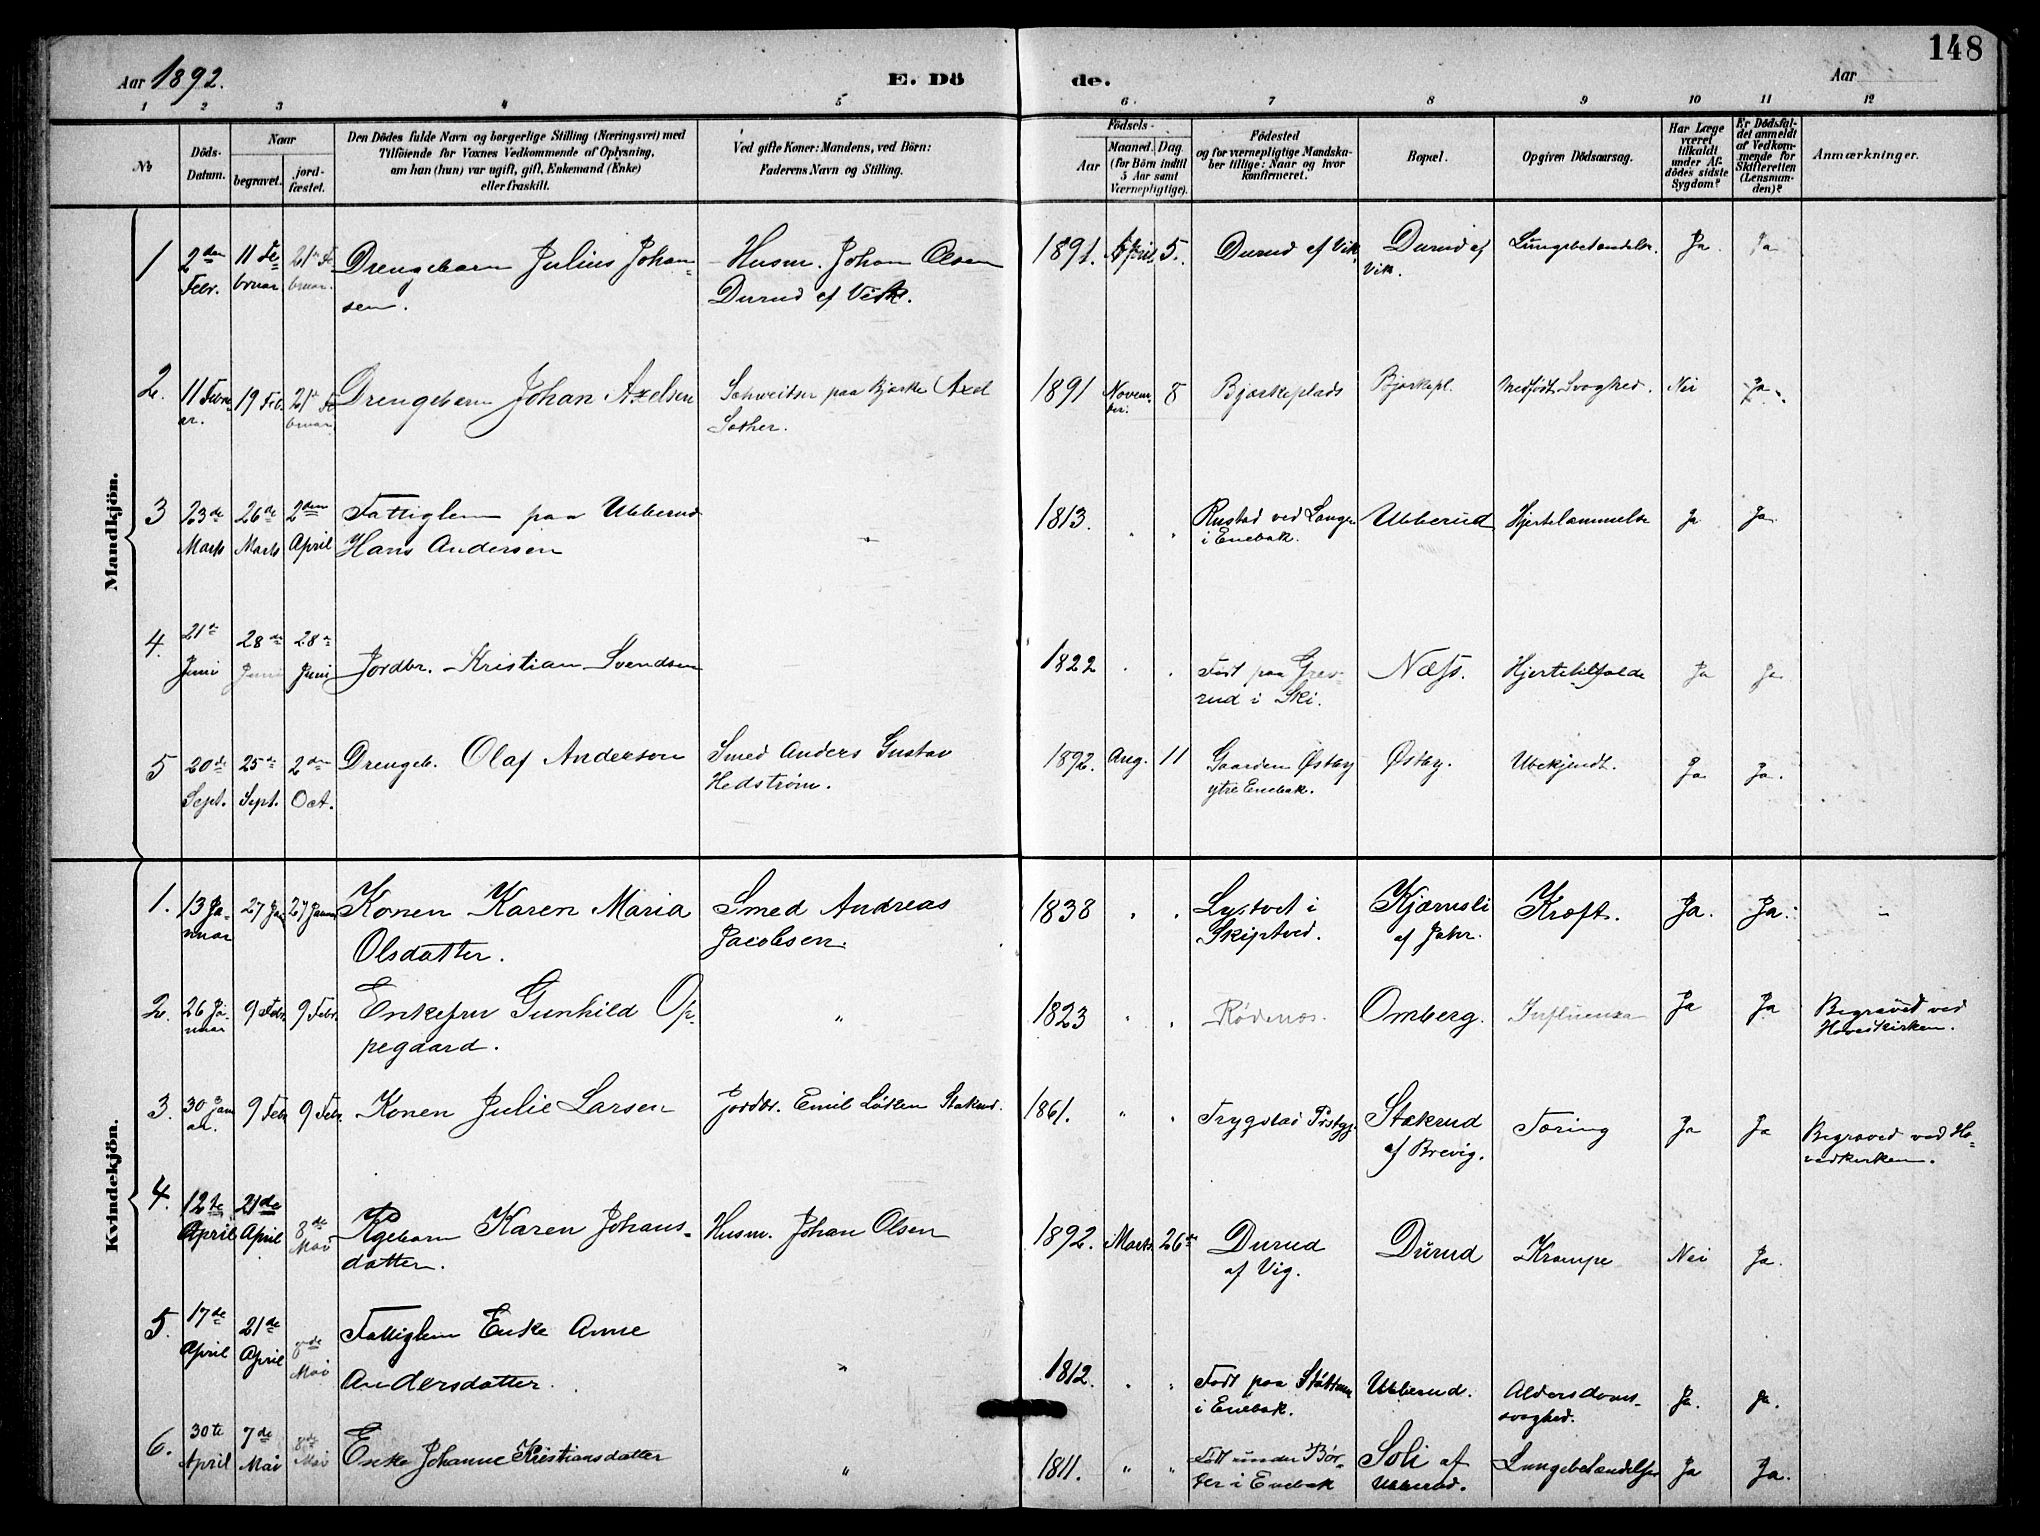 148
Aar 1892.
E. Dö
de.
Aar
1 2 3 4 5 6. 7 8 9 10 11 12
No
Döds-Datum.
Naar
begravet.
jord-fæstet.
Den Dödes fulde Navn og borgerlige Stilling (Næringsvei) med
Tilföiende for Voxnes Vedkommende af Oplysning,
om han (hun) var ugift, gift, Enkemand (Enke)
eller fraskilt.
Ved gifte Koner: Mandens, ved Börn:
Faderens Navn og Stilling.
Födsels-
Aar
Maaned. Dag.
(for Börn indtil
5 Aar samt
Værnepligtige).
Födested
og for værnepligtige Mandska-
ber tillige: Naar og hvor
konfirmeret.
Bopæl.
Opgiven Dödsaarsag.
Har Læge
været
tilkaldt
under Af-
dödes sidste
Sygdom?
Er Dödsfal-
det anmeldt
af Vedkom-
mende for
Skifteretten
(Lensman-
den)?
Anmærkninger.
Mandkjön.
1 2den Febr. 11 Februar 21 Februar. Drengebarn Julius Johan-
sen. Husm. Johan Olsen
Durud af Vik. 1891. April 5. Durud af Vik Durud af
Vik. Lungebetændelse. Ja Ja
2. 11 Februar. 19 Feb. 21 Februar. Drengebarn Johan Axelsen Schweitser paa Bjerke Axel
Sæther. 1891 November. 8 Bjerkeplads Bjerkepl. Medfödt Svaghed. Nei Ja.
3 23de Marts 26de Marts 2den April Fattiglem paa Ubberud
Hans Andersen " 1813. " " Rustad ved Langen
i Enebak. Ubberud Hjertelammelse Ja Ja
4. 21de Juni 28de Juni 28de Juni Jordbr. Kristian Svendsen 1822 " " Født paa Grev-
rud i Ski. Næss. Hjertetilfælde Ja Ja
5 20de Sept. 25de Sept. 2den Oct. Drengeb. Olaf Anderson Smed Anders Gustav
Hedstrøm. 1892. Aug. 11 Gaarden Østby
ytre Enebak. Østby. Ubekjendt. Ja Ja.
Kvindekjön.
1. 13 Januar 27 Jan 27 Januar Konen Karen Maria
Olsdatter. Smed Andreas
Jacobsen. 1838 " " Lystvet i
Skiptved. Kjærnsli
af Jahr. Kræft. Ja. Ja. "
2. 26 Januar 9 Febr. 9 Febr. Enkefru Gunhild Op-
pegaard. " 1823 " " Rødenes. Omberg. Influenza Ja Ja Begravet ved
Hovedkirken.
3. 30 Januar. 9 Febr 9 Febr. Konen Julie Larsen Jordbr. Emil Løken Stakrud. 1861. " " Trygstad Præstgj. Stakrud
af Brevig. Tæring Ja Ja Begravet ved Ho-
vedkirken.
4. 12te April 21de April 8de Mai Pigebarn Karen Johans-
datter. Husm. Johan Olsen 1892. Marts 26de Durud
af Vig. Durud Krampe Nei Ja.
5. 17de April 21de April 8de Mai Fattiglem Enke Anne
Andersdatter. " 1812. " " Født paa
i Enebak. Ubberud. Alderdoms-
svaghed. Ja. Ja.
6. 30te April 7de Mai 8de Mai Enke Johanne Kristiansdatter " 1811. " " Født under Bør-
ger i Enebak Soli af
Ubberud. Lungebetændelse Ja Ja.